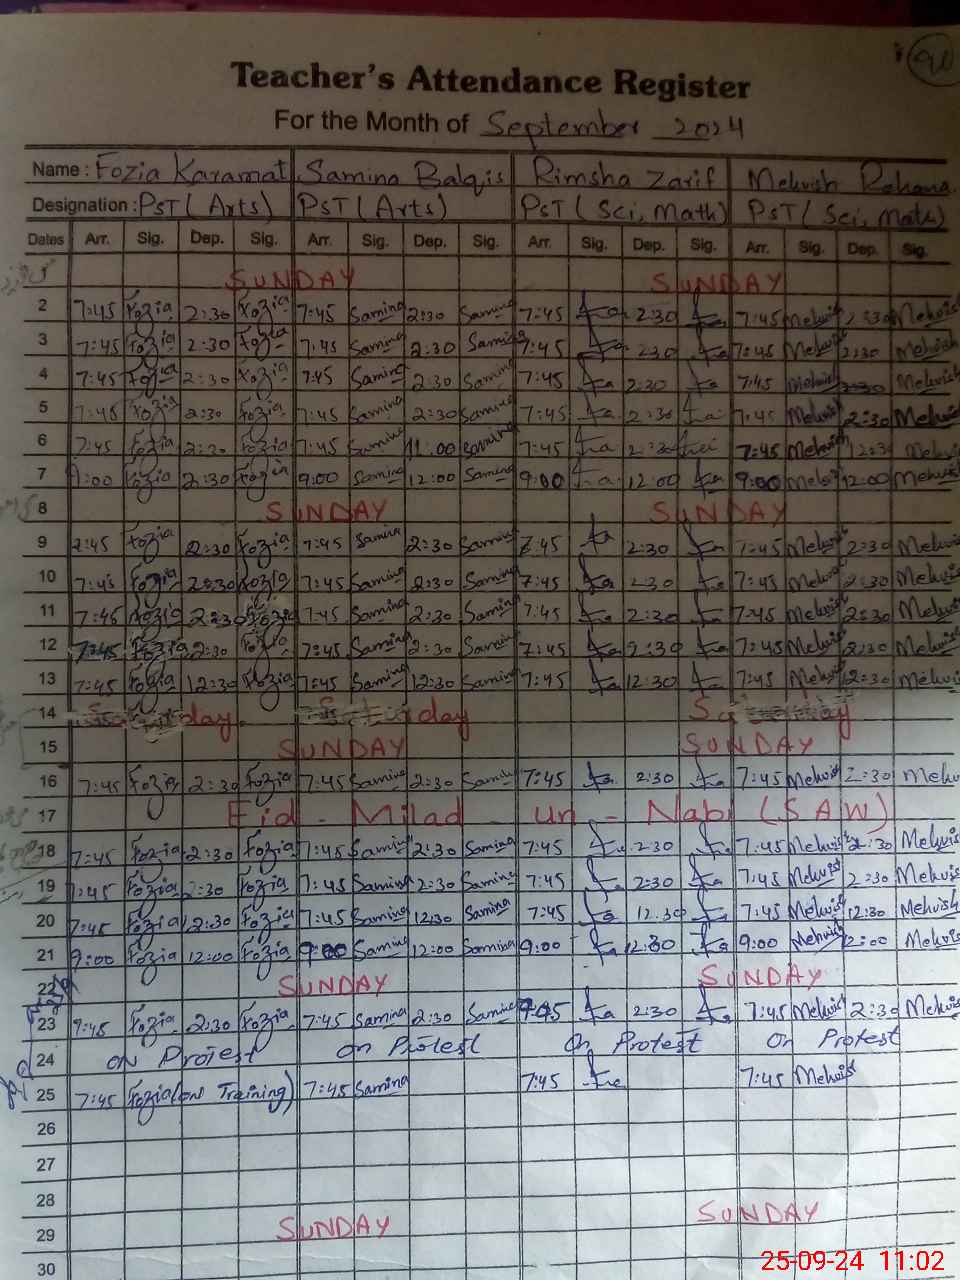 90
Teacher's Attendance Register
For the Month of September 2024
Name : Fozia Karamat Samina Balqis Rimsha Zarif Mehvish Rehana
Designation : PST (Arts) PST (Arts) PST (Sci, Math) PST (Sci, Math)
Dates Arr. Sig. Dep. Sig. Arr. Sig. Dep. Sig. Arr. Sig. Dep. Sig. Arr. Sig. Dep. Sig.
SUNDAY SUNDAY
2 7:45 Fozia 2:30 Fozia 7:45 Samina 2:30 Samina 7:45 2:30 7:45 Mehvish 2:30 Mehvish
3 7:45 Fozia 2:30 Fozia 7:45 Samina 2:30 Samina 7:45 2:30 7:45 Mehvish 2:30 Mehvish
4 7:45 Fozia 2:30 Fozia 7:45 Samina 2:30 Samina 7:45 2:30 7:45 Mehvish 2:30 Mehvish
5 7:45 Fozia 2:30 Fozia 7:45 Samina 2:30 Samina 7:45 2:30 7:45 Mehvish 2:30 Mehvish
6 7:45 Fozia Fozia 7:45 Samina 11:00 Samina 7:45 7:45 Mehvish 12:30 Mehvish
7 9:00 Fozia 2:30 Fozia 9:00 Samina 12:00 Samina 9:00 12:00 9:00 Mehvish 12:00 Mehvish
8 SUNDAY SUNDAY
9 7:45 Fozia 2:30 Fozia 7:45 Samina 2:30 Samina 7:45 2:30 7:45 Mehvish 2:30 Mehvish
10 7:45 Fozia 2:30 Fozia 7:45 Samina 2:30 Samina 7:45 2:30 7:45 Mehvish 2:30 Mehvish
11 7:45 Fozia 2:30 Fozia 7:45 Samina 2:30 Samina 7:45 2:30 7:45 Mehvish 2:30 Mehvish
12 7:45 Fozia 2:30 Fozia 7:45 Samina 2:30 Samina 7:45 2:30 7:45 Mehvish 2:30 Mehvish
13 7:45 Fozia 12:30 Fozia 7:45 Samina 12:30 Samina 7:45 12:30 7:45 Mehvish 12:30 Mehvish
14 Saturday Saturday Saturday
15 SUNDAY SUNDAY
16 7:45 Fozia 2:30 Fozia 7:45 Samina 2:30 Samina 7:45 2:30 7:45 Mehvish 2:30 Mehvish
17 Eid - Milad - un - Nabi (S A W)
18 7:45 Fozia 2:30 Fozia 7:45 Samina 2:30 Samina 7:45 2:30 7:45 Mehvish 2:30 Mehvish
19 7:45 Fozia 2:30 Fozia 7:45 Samina 2:30 Samina 7:45 2:30 7:45 Mehvish 2:30 Mehvish
20 7:45 Fozia 12:30 Fozia 7:45 Samina 12:30 Samina 7:45 12:30 7:45 Mehvish 12:30 Mehvish
21 9:00 Fozia 12:00 Fozia 9:00 Samina 12:00 Samina 9:00 12:30 9:00 Mehvish 12:00 Mehvish
22 SUNDAY SUNDAY
23 7:45 Fozia 2:30 Fozia 7:45 Samina 2:30 Samina 7:45 2:30 7:45 Mehvish 2:30 Mehvish
24 ON Protest On Protest On Protest On Protest
25 7:45 Fozia (on Training) 7:45 Samina 7:45 7:45 Mehvish
26
27
28
29 SUNDAY SUNDAY
30
25-09-24 11:02